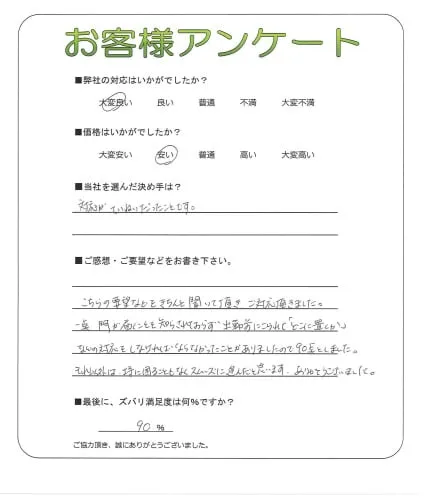 お客様アンケート
■弊社の対応はいかがでしたか？
大変良い 良い 普通 不満 大変不満
■価格はいかがでしたか？
大変安い 安い 普通 高い 大変高い
■当社を選んだ決め手は？
対応がていねいだったことです。
■ご感想・ご要望などをお書き下さい。
こちらの要望などをきちんと聞いて頂き ご対応頂きました。
一点 門が届くことを知らされておらず 出勤前にこられて「どこに置くか」
ないの対応をしなければならなかったことがありましたので90点としました。
それ以外は特に困ることもなくスムーズに進んだと思います。ありがとうございました。
■最後に、ズバリ満足度は何％ですか？
90 ％
ご協力頂き、誠にありがとうございました。